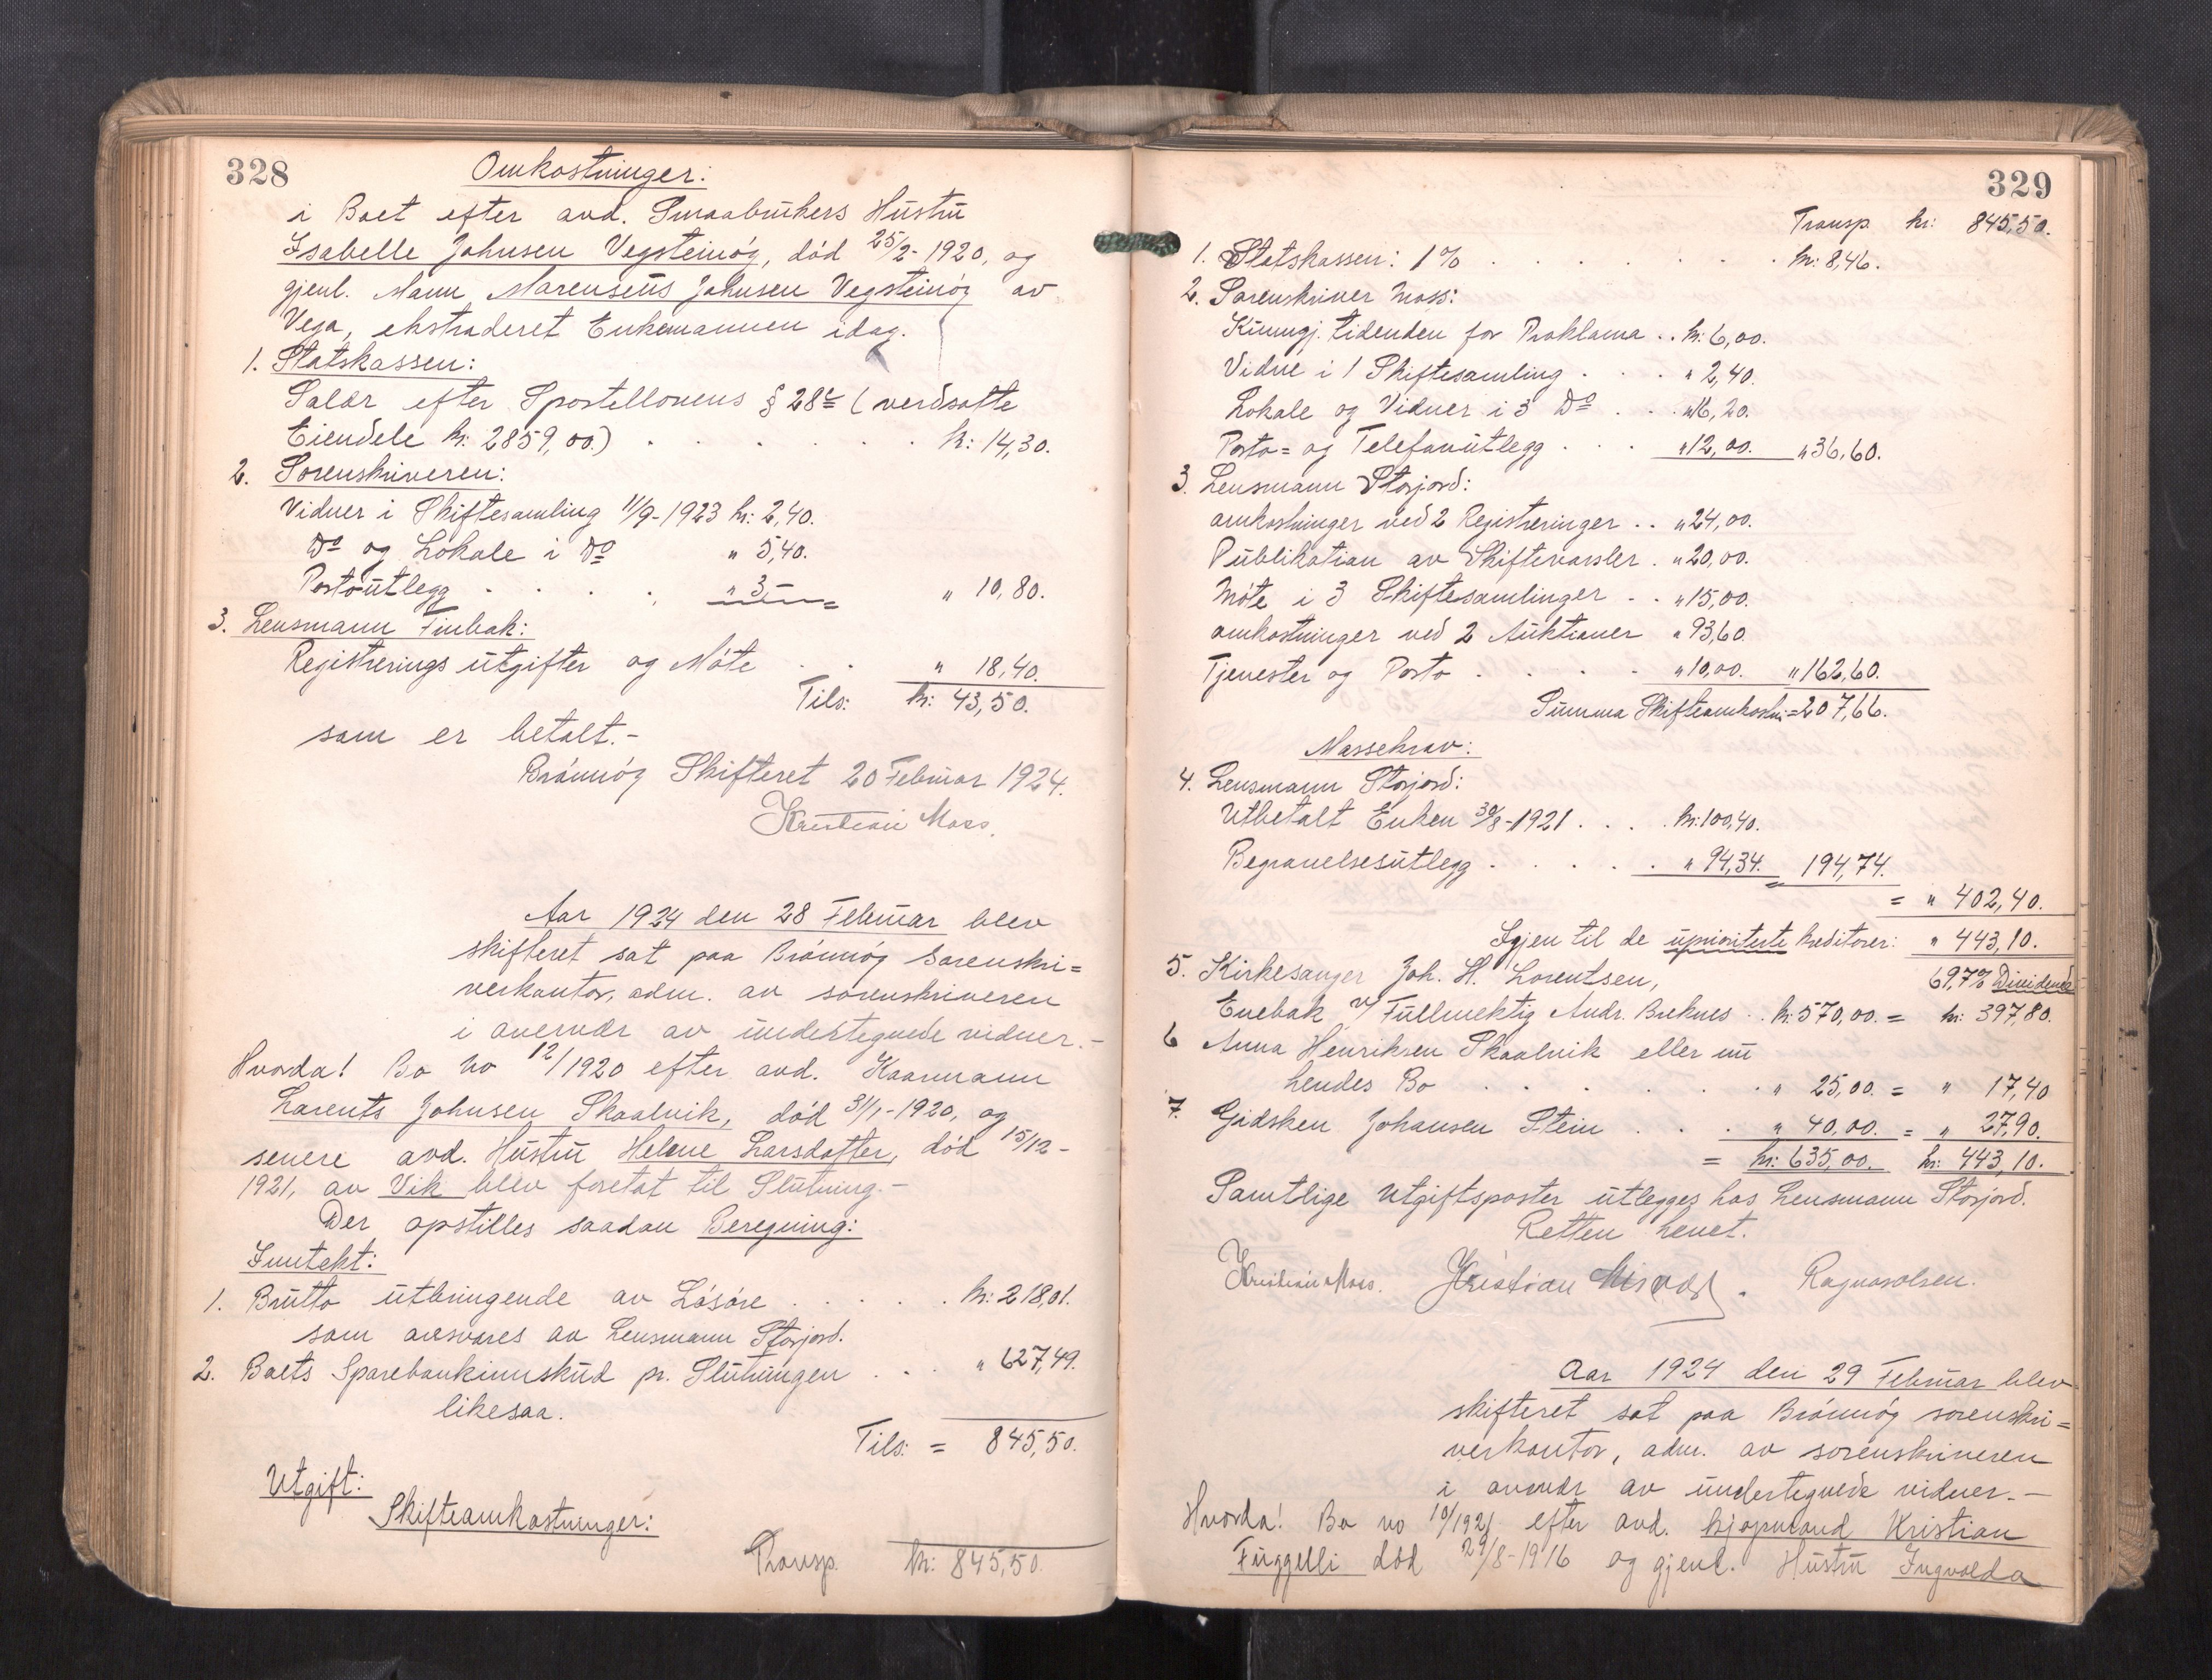 328
Omkostninger:
i Boet efter avd. Smaabrukers Hustru
Isabelle Johnsen Vegsteinöy, död 25/2-1920, og
gjenl. Mann Marensius Johnsen Vegsteinöy av
Vega, ekstraderet Enkemannen idag.
1. Statskassen:
Salær efter Sportellovens § 28 (verdsatte
Eiendele kr: 2859,00.) . . . . . . kr: 14,30.
2. Sorenskriveren:
Vidner i Skiftesamling 11/9-1923 kr: 2,40.
Do og Lokale i Do " 5,40.
Portoutlegg . . . . " 3,— " 10,80.
3. Lensmann Finbak:
Registreringsutgifter og Möte . . " 18,40.
Tils: kr: 43,50.
som er betalt.-
Brönnöy Skifteret 20 Februar 1924.
Kristian Moss.
Aar 1924 den 28 Februar blev
skifteret sat paa Brönnöy Sorenskri=
verkontor, adm. av sorenskriveren
i overvær av undertegnede vidner.-
Hvorda! Bo No 12/1920 efter avd. Kaarmann
Lorents Johnsen Skaalvik, död 31/1-1920, og
senere avd. Hustru Helene Larsdatter, död 15/12-
1921, av Vik blev foretat til Slutning.-
Der opstilles saadan Beregning:
Inntekt:
1. Brutto utbringende av Lösöre . . . . . kr: 218,01.
som ansvares av Lensmann Storjord.
2. Boets Sparebankinnskud pr. Slutningen . . . " 627,49.
likesaa.
Tils: = 845,50.
Utgift:
Skifteomkostninger:
Transp. kr: 845,50.
329
Transp. kr: 845,50.
1. Statskassen: 1% . . . . . . . kr: 8,46.
2. Sorenskriver Moss:
Kunngj. tidenden for Proklama . . kr: 6,00.
Vidne i 1 Skiftesamling . . . " 2,40.
Lokale og Vidner i 3 Do . . . "16,20.
Porto= og Telefonutlegg . . . "12,00. "36,60.
3. Lensmann Storjord:
omkostninger ved 2 Registreringer . . "24,00.
Publikation av Skiftevarsler . "20,00.
Möte i 3 Skiftesamlinger . . "15,00.
omkostninger ved 2 Auktioner " 93,60.
Tjenester og Porto . . . . "10,00. "162,60.
Summa Skifteomkostn: =207,66.
Massekrav:
4. Lensmann Storjord:
Utbetalt Enken 30/8-1921 . . . . kr: 100,40.
Begravelsesutlegg . . . . . " 94,34. 194,74.
= " 402,40.
Igjen til de uprioriterte kreditorer: " 443,10.
5. Kirkesanger Joh. H. Lorentsen, 69,7% Dividende
Enebak v/ Fullmektig Andr. Breknes . . kr: 570,00. = kr: 397,80.
6 Anna Henriksen Skaalvik eller nu
hendes Bo . . . . . . " 25,00. = " 17,40
7. Gidsken Johansen Stein . . . " 40,00. = " 27,90.
= kr: 635,00. kr: 443,10.
Samtlige Utgiftsposter utlegges hos Lensmann Storjord.
Retten hevet.
Kristian Moss. Kristian Ragnarolsen.
Aar 1924 den 29 Februar blev
skifteret sat paa Brönnöy sorenskri=
verkontor, adm. av sorenskriveren
i overvær av undertegnede vidner.-
Hvorda! Bo No 10/1921 efter avd. kjøpmand Kristian
Fuggelli död 29/8-1916 og gjenl. Hustru Ingvolda